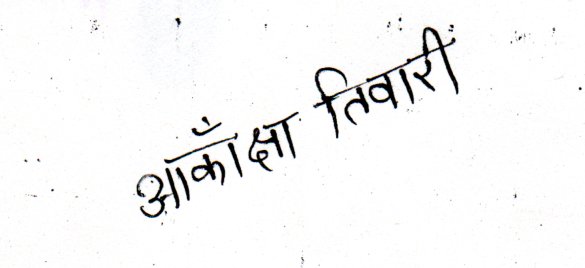 आकाँक्षा तिवारी